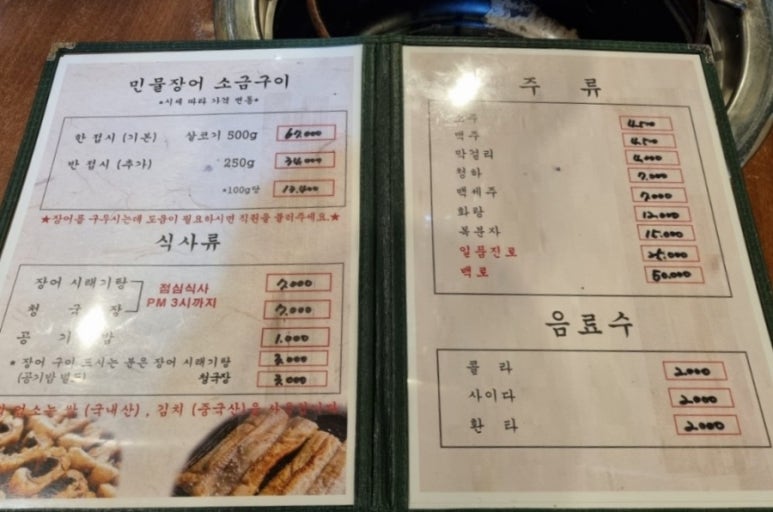 민물장어 소금구이
*시세 따라 가격 변동*
한 접시 (기본) 살코기 500g 67,000
반 접시 (추가) 250g 34,000
*100g당 13,400
★장어를 구우시는데 도움이 필요하시면 직원을 불러주세요.★
식사류
장어 시래기탕 7,000
점심식사
PM 3시까지
청 국 장 7,000
공 기 밥 1,000
* 장어 구이 드시는 분은 장어 시래기탕 3,000
(공기밥 별도) 청국장 3,000
업소는 쌀 (국내산), 김치 (중국산)을 사용합니다
주 류
소주 4,500
맥주 4,500
막걸리 4,000
청하 7,000
백세주 7,000
화랑 12,000
복분자 15,000
일품진로 25,000
백로 50,000
음료수
콜 라 2,000
사이다 2,000
환 타 2,000